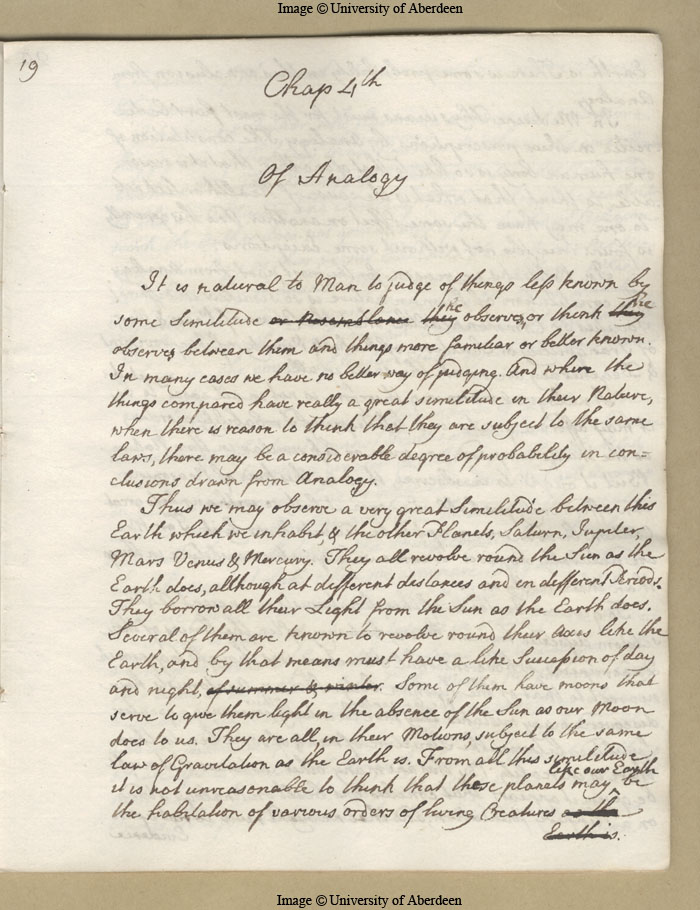 Image © University of Aberdeen
19
Chap 4th
Of Analogy
It is natural to Man to judge of things less known by
some Similitude or Resemblance they he observes, or think they he
observes between them and things more familiar or better known.
In many cases we have no better way of judging. And where the
things compared have really a great similitude in their Nature,
when there is reason to think that they are subject to the same
laws, there may be a considerable degree of probability in con=
clusions drawn from Analogy.
Thus we may observe a very great Similitude between this
Earth which we inhabit, & the other Planets, Saturn, Jupiter,
Mars Venus & Mercury. They all revolve round the Sun as the
Earth does, although at different distances and in different Periods.
They borrow all their Light from the Sun as the Earth does.
Several of them are known to revolve round their Axis like the
Earth, and by that means must have a like Succession of day
and night, of summer & winter. Some of them have moons that
serve to give them light in the absence of the Sun as our Moon
does to us. They are all, in their Motions, subject to the same
law of Gravitation as the Earth is. From all this similitude
like our Earth
it is not unreasonable to think that these planets may be
the habitation of various orders of living Creatures as the
Earth is.
Image © University of Aberdeen